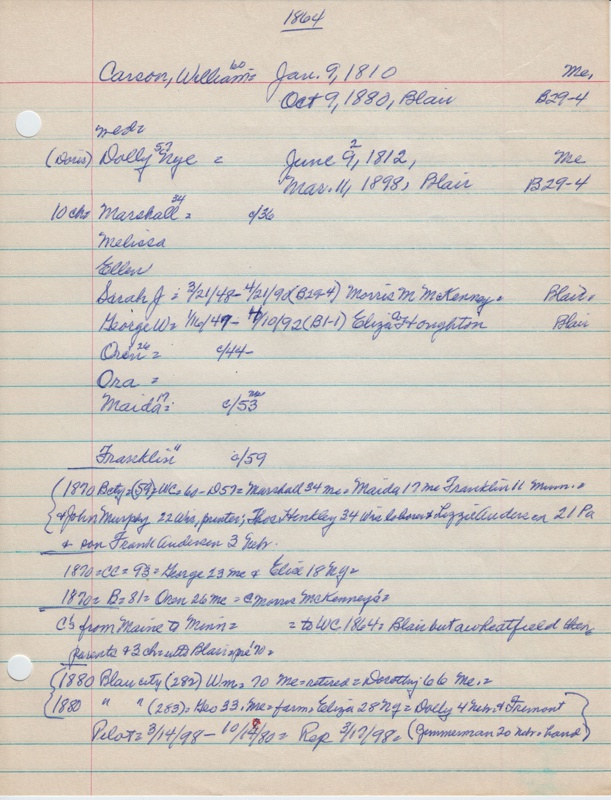 1864
Carson, William 60 = Jan. 9, 1810 Me.
Oct 9, 1880, Blair B29-4
(Doris) Dolly 57 Nye = June 9, 2 1812, Me
Mar. 11, 1898, Blair B29-4
10 ch = Marshall 34 = c/36
Melissa
Ellen
Sarah J = 3/21/48 - 4/21/9 (B29-4) Morris M McKenney = Blair
George W = - 4/10/92 (B1-1) Eliza Houghton Blair
Oren 26 = c/44-
Ora =
Maida 17 = c/53 me
Franklin 11 c/59
(1870 Bcty = (59) = WC = 60 - D57 = Marshall 34 me = Maida 17 me Franklin 11 Minn. =
& John Murphy 22 Wis, printer; Thos. Henkley 34 Wis laborer & Lizzie Andersen 21 Pa
& son Frank Andersen 3 Nebr.
1870 = CC = 93 = George 23 me & Eliz 18 Ny =
1870 = B = 81 = Oren 26 me = c Morris McKenney's =
C's from Maine to Minn = = to WC 1864 = Blair but a wheatfield then
parents & 3 ch = Blair
(1880 Blair city (282) Wm = 70 Me = retired = Dorothy 66 Me. =
(1880 " " (283) = Geo 33, me = farm = Eliza 28 Ny = Dolly 4 Nebr. & Fremont
Pilot = 3/14/98 - 10/14/80 = Rep 3/17/98 = (Gimmerman 20 Nebr = hand)